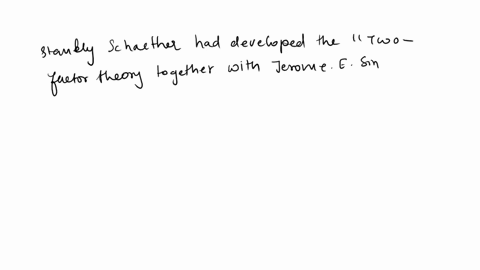 Stankly Schaether had developed the "Two-
factor theory together with Jerome. E. Sin